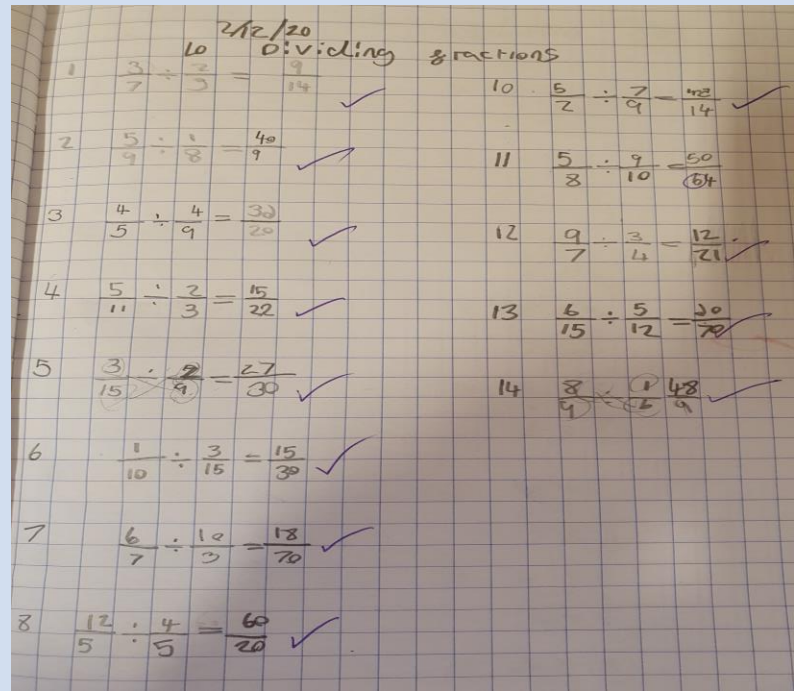 2/12/20
LO Dividing fractions
1 3/7 ÷ 2/3 = 9/14
2 5/9 ÷ 1/8 = 40/9
3 4/5 ÷ 4/9 = /20
4 5/11 ÷ 2/3 = 15/22
5 3/15 ÷ 2/9 = 27/30
6 1/10 ÷ 3/15 = 15/30
7 6/7 ÷ 10/3 = 18/70
8 12/5 ÷ 4/5 = 60/20
10 5/2 ÷ 7/9 = /14
11 5/8 ÷ 9/10 = 50/64
12 9/7 ÷ 3/4 = 12/21
13 6/15 ÷ 5/12 =
14 8/9 1/6 48/9